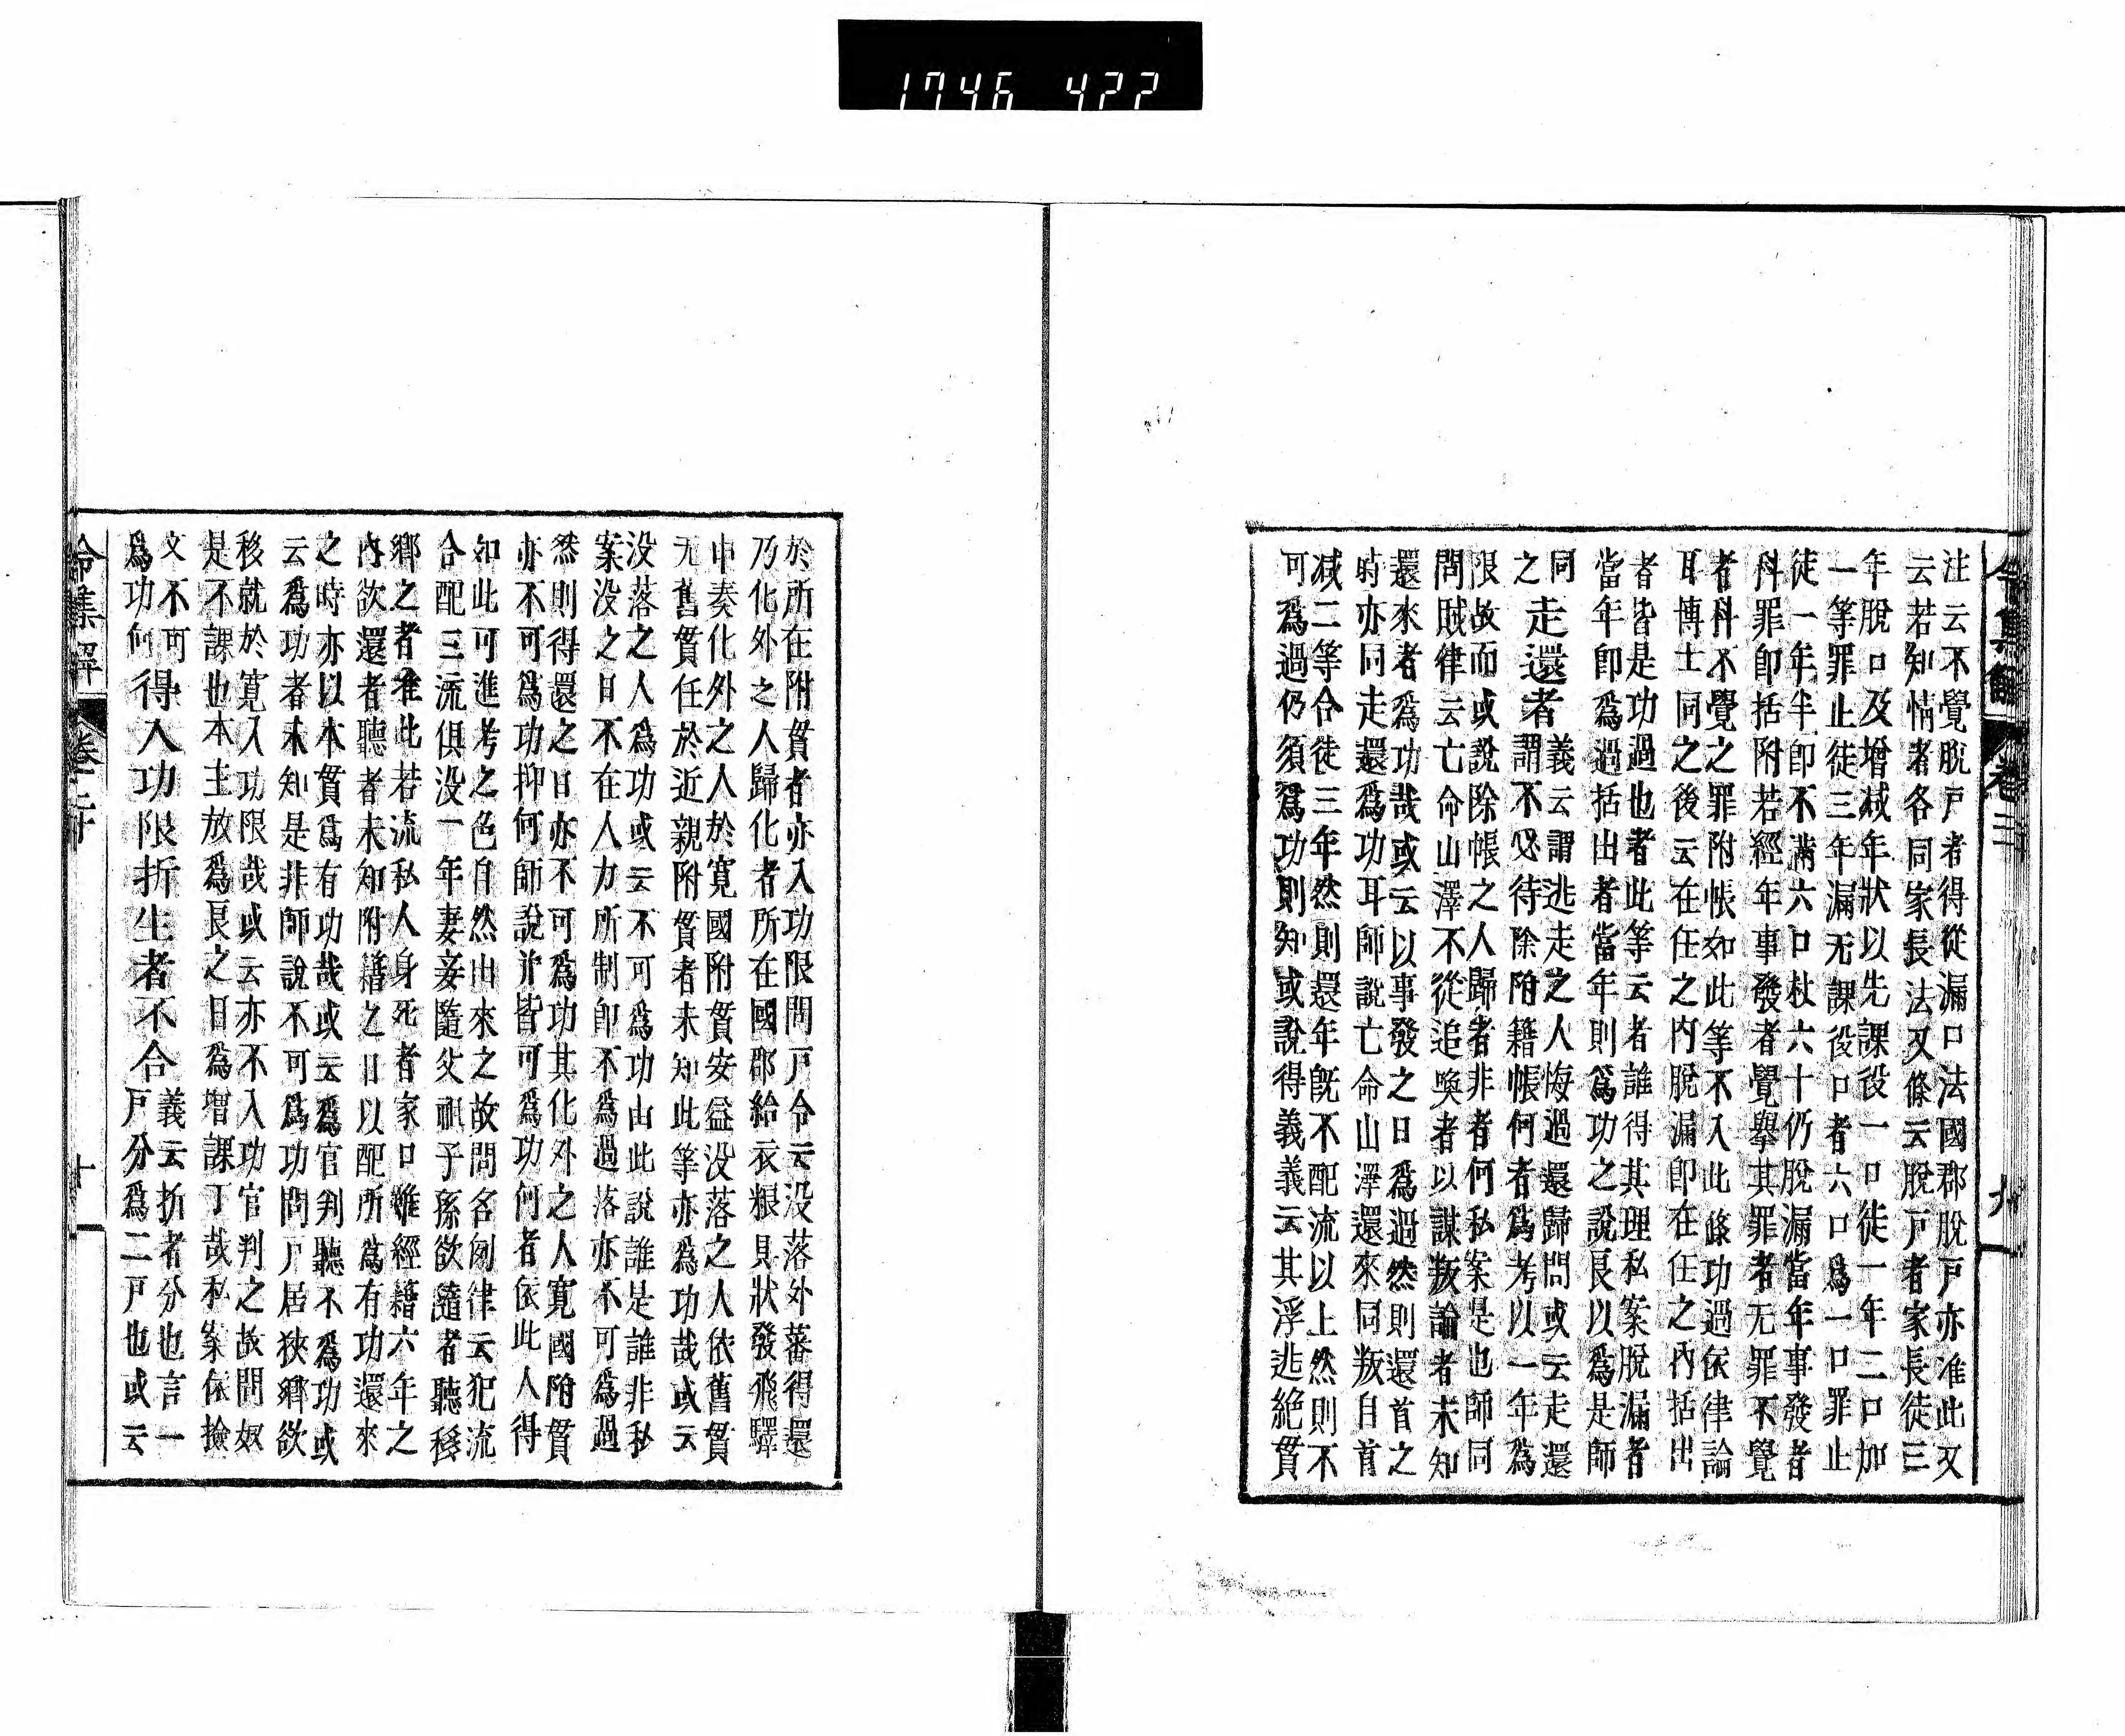 1746 422
令集解 卷三 九
注云不覺脫戸者得從漏口法國郡脫戸亦准此又
云若知情者各同家長法又條云脫戸者家長徒三
年脫口及增减年狀以先課役一口徒一年二口加
一等罪止徒三年漏无課役口者六口爲一口罪止
徒一年半即不滿六口杖六十仍脫漏當年事發者
科罪即括附若經年事發者覺擧其罪者无罪不覺
者科不覺之罪附帳如此等不入此條功過依律論
耳博士同之後云在任之內脫漏即在任之內括出
者皆是功過也者此等云者誰得其理私案脫漏者
當年即爲過括出者當年則爲功之說長以爲是師
同
之
走還者
義云謂逃走之人悔過還歸問或云走還
謂不必待除附籍帳何者爲考以一年爲
限故而或說除帳之人歸者非者何私案是也師同
問賊律云亡命山澤不從追喚者以謀叛論者未知
還來者爲功哉或云以事發之日爲過然則還首之
時亦同走還爲功耳師說亡命山澤還來同叛自首
减二等合徒三年然則還年旣不配流以上然則不
可爲過仍須爲功則知或說得義義云其浮逃絕貫
於所在附貫者亦入功限問戸令云没落外蕃得還
乃化外之人歸化者所在國郡給衣粮具狀發飛驛
申奏化外之人於寛國附貫安益没落之人依舊貫
无舊貫任於近親附貫者未知此等亦爲功哉或云
没落之人爲功或云不可爲功由此說誰是誰非私
案没之日不在人力所制即不爲過落亦不可爲過
然則得還之日亦不可爲功其化外之人寛國附貫
亦不可爲功抑何師說并皆可爲功何者依此人得
如此可進考之色自然出來之故問名例律云犯流
合配三流俱没一年妻妾隨父祖子孫欲隨者聽移
鄉之者准此若流私人身死者家口雖經籍六年之
內欲還者聽者未知附籍之日以配所爲有功還來
之時亦以本貫爲有功哉或云爲官判聽不爲功或
云爲功者未知是非師說不可爲功問戸居狹鄉欲
移就於寛入功限哉或云亦不入功官判之故問奴
是不課也本主放爲良之日爲增課丁哉私案依撿
文不可
爲功何
得入功限折生者不合
義云折者分也言一
戸分爲二戸也或云
令集解 卷三 十